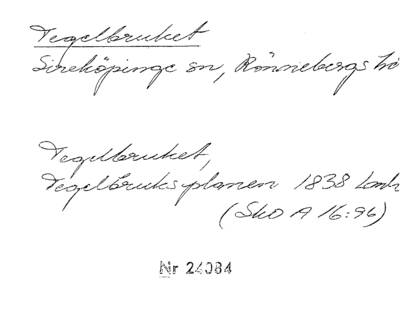 Tegelbruket
Sireköpinge sn, Rönnebergs hd
Tegelbruket,
Tegelbruksplanen 1838 Lantm
(Sko A 16:96)
Nr 24084